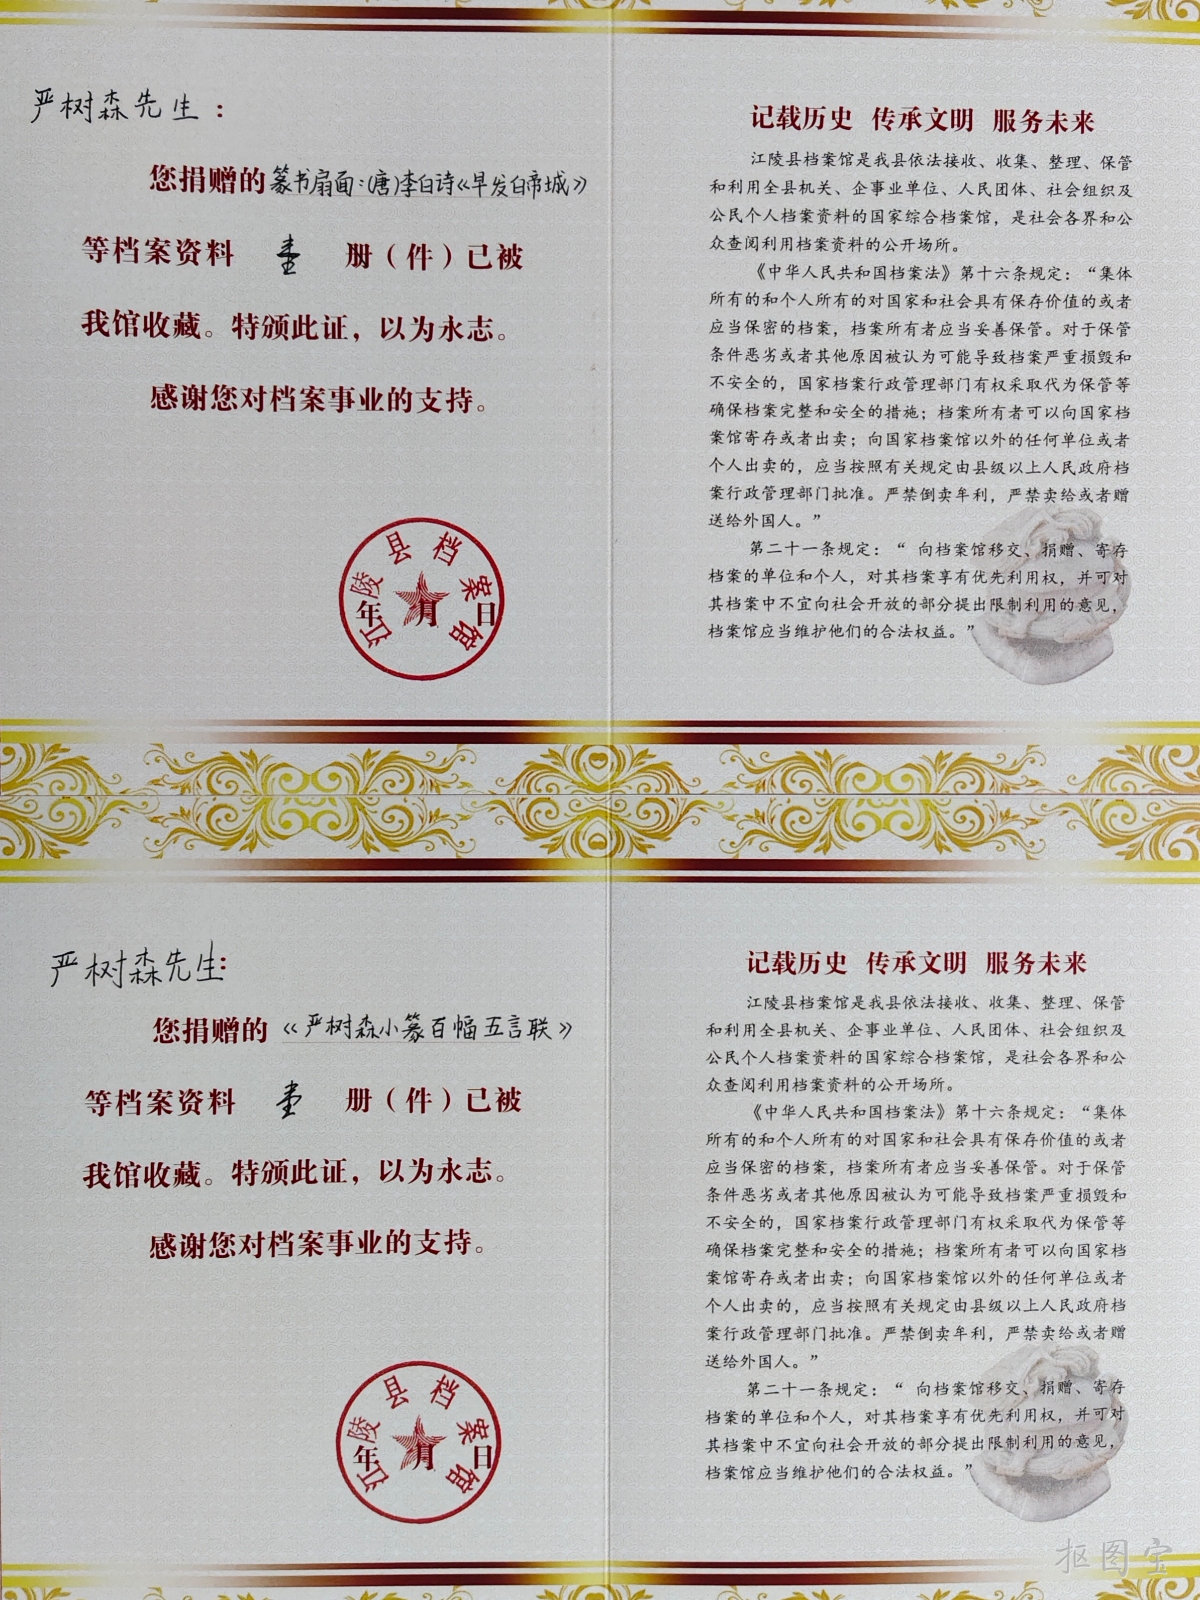 严树森先生：
您捐赠的篆书扇面：(唐)李白诗《早发白帝城》
等档案资料 壹 册（件）已被
我馆收藏。特颁此证，以为永志。
感谢您对档案事业的支持。
江陵县档案馆
年 月 日
记载历史 传承文明 服务未来
江陵县档案馆是我县依法接收、收集、整理、保管
和利用全县机关、企事业单位、人民团体、社会组织及
公民个人档案资料的国家综合档案馆，是社会各界和公
众查阅利用档案资料的公开场所。
《中华人民共和国档案法》第十六条规定：“集体
所有的和个人所有的对国家和社会具有保存价值的或者
应当保密的档案，档案所有者应当妥善保管。对于保管
条件恶劣或者其他原因被认为可能导致档案严重损毁和
不安全的，国家档案行政管理部门有权采取代为保管等
确保档案完整和安全的措施；档案所有者可以向国家档
案馆寄存或者出卖；向国家档案馆以外的任何单位或者
个人出卖的，应当按照有关规定由县级以上人民政府档
案行政管理部门批准。严禁倒卖牟利，严禁卖给或者赠
送给外国人。”
第二十一条规定：“ 向档案馆移交、捐赠、寄存
档案的单位和个人，对其档案享有优先利用权，并可对
其档案中不宜向社会开放的部分提出限制利用的意见，
档案馆应当维护他们的合法权益。”
严树森先生：
您捐赠的《严树森小篆百幅五言联》
等档案资料 壹 册（件）已被
我馆收藏。特颁此证，以为永志。
感谢您对档案事业的支持。
江陵县档案馆
年 月 日
记载历史 传承文明 服务未来
江陵县档案馆是我县依法接收、收集、整理、保管
和利用全县机关、企事业单位、人民团体、社会组织及
公民个人档案资料的国家综合档案馆，是社会各界和公
众查阅利用档案资料的公开场所。
《中华人民共和国档案法》第十六条规定：“集体
所有的和个人所有的对国家和社会具有保存价值的或者
应当保密的档案，档案所有者应当妥善保管。对于保管
条件恶劣或者其他原因被认为可能导致档案严重损毁和
不安全的，国家档案行政管理部门有权采取代为保管等
确保档案完整和安全的措施；档案所有者可以向国家档
案馆寄存或者出卖；向国家档案馆以外的任何单位或者
个人出卖的，应当按照有关规定由县级以上人民政府档
案行政管理部门批准。严禁倒卖牟利，严禁卖给或者赠
送给外国人。”
第二十一条规定：“ 向档案馆移交、捐赠、寄存
档案的单位和个人，对其档案享有优先利用权，并可对
其档案中不宜向社会开放的部分提出限制利用的意见，
档案馆应当维护他们的合法权益。”
抠图宝